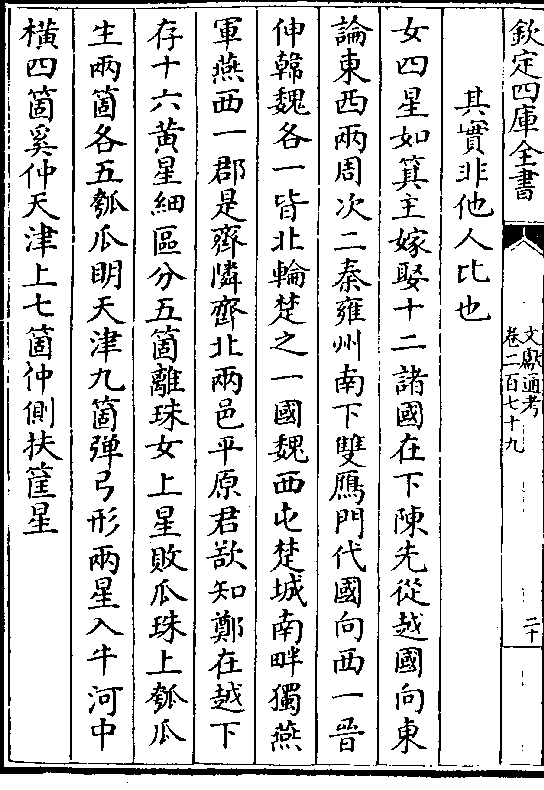 欽定四庫全書
文獻通考
卷二百七十九
二十
其實非他人比也
女四星如箕主嫁娶十二諸國在下陳先從越國向東
論東西兩周次二秦雍州南下雙鴈門代國向西一晉
伸韓魏各一皆北輪楚之一國魏西屯楚城南畔獨燕
軍燕西一郡是齊隣齊北兩邑平原君欲知鄭在越下
存十六黃星細區分五箇離珠女上星敗瓜珠上瓠瓜
生兩箇各五瓠瓜明天津九箇彈弓形兩星入牛河中
橫四箇奚仲天津上七箇仲側扶筐星